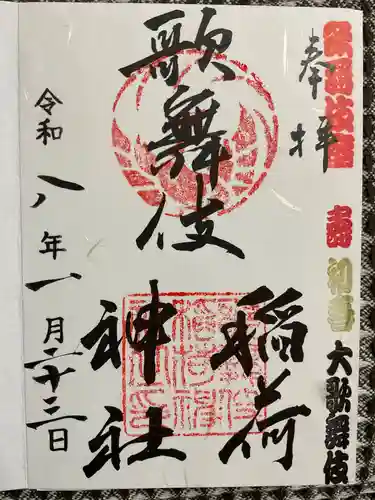 奉拝
歌舞伎座
壽 初春 大歌舞伎
歌舞伎
稲荷
神社
令和八年一月二十三日